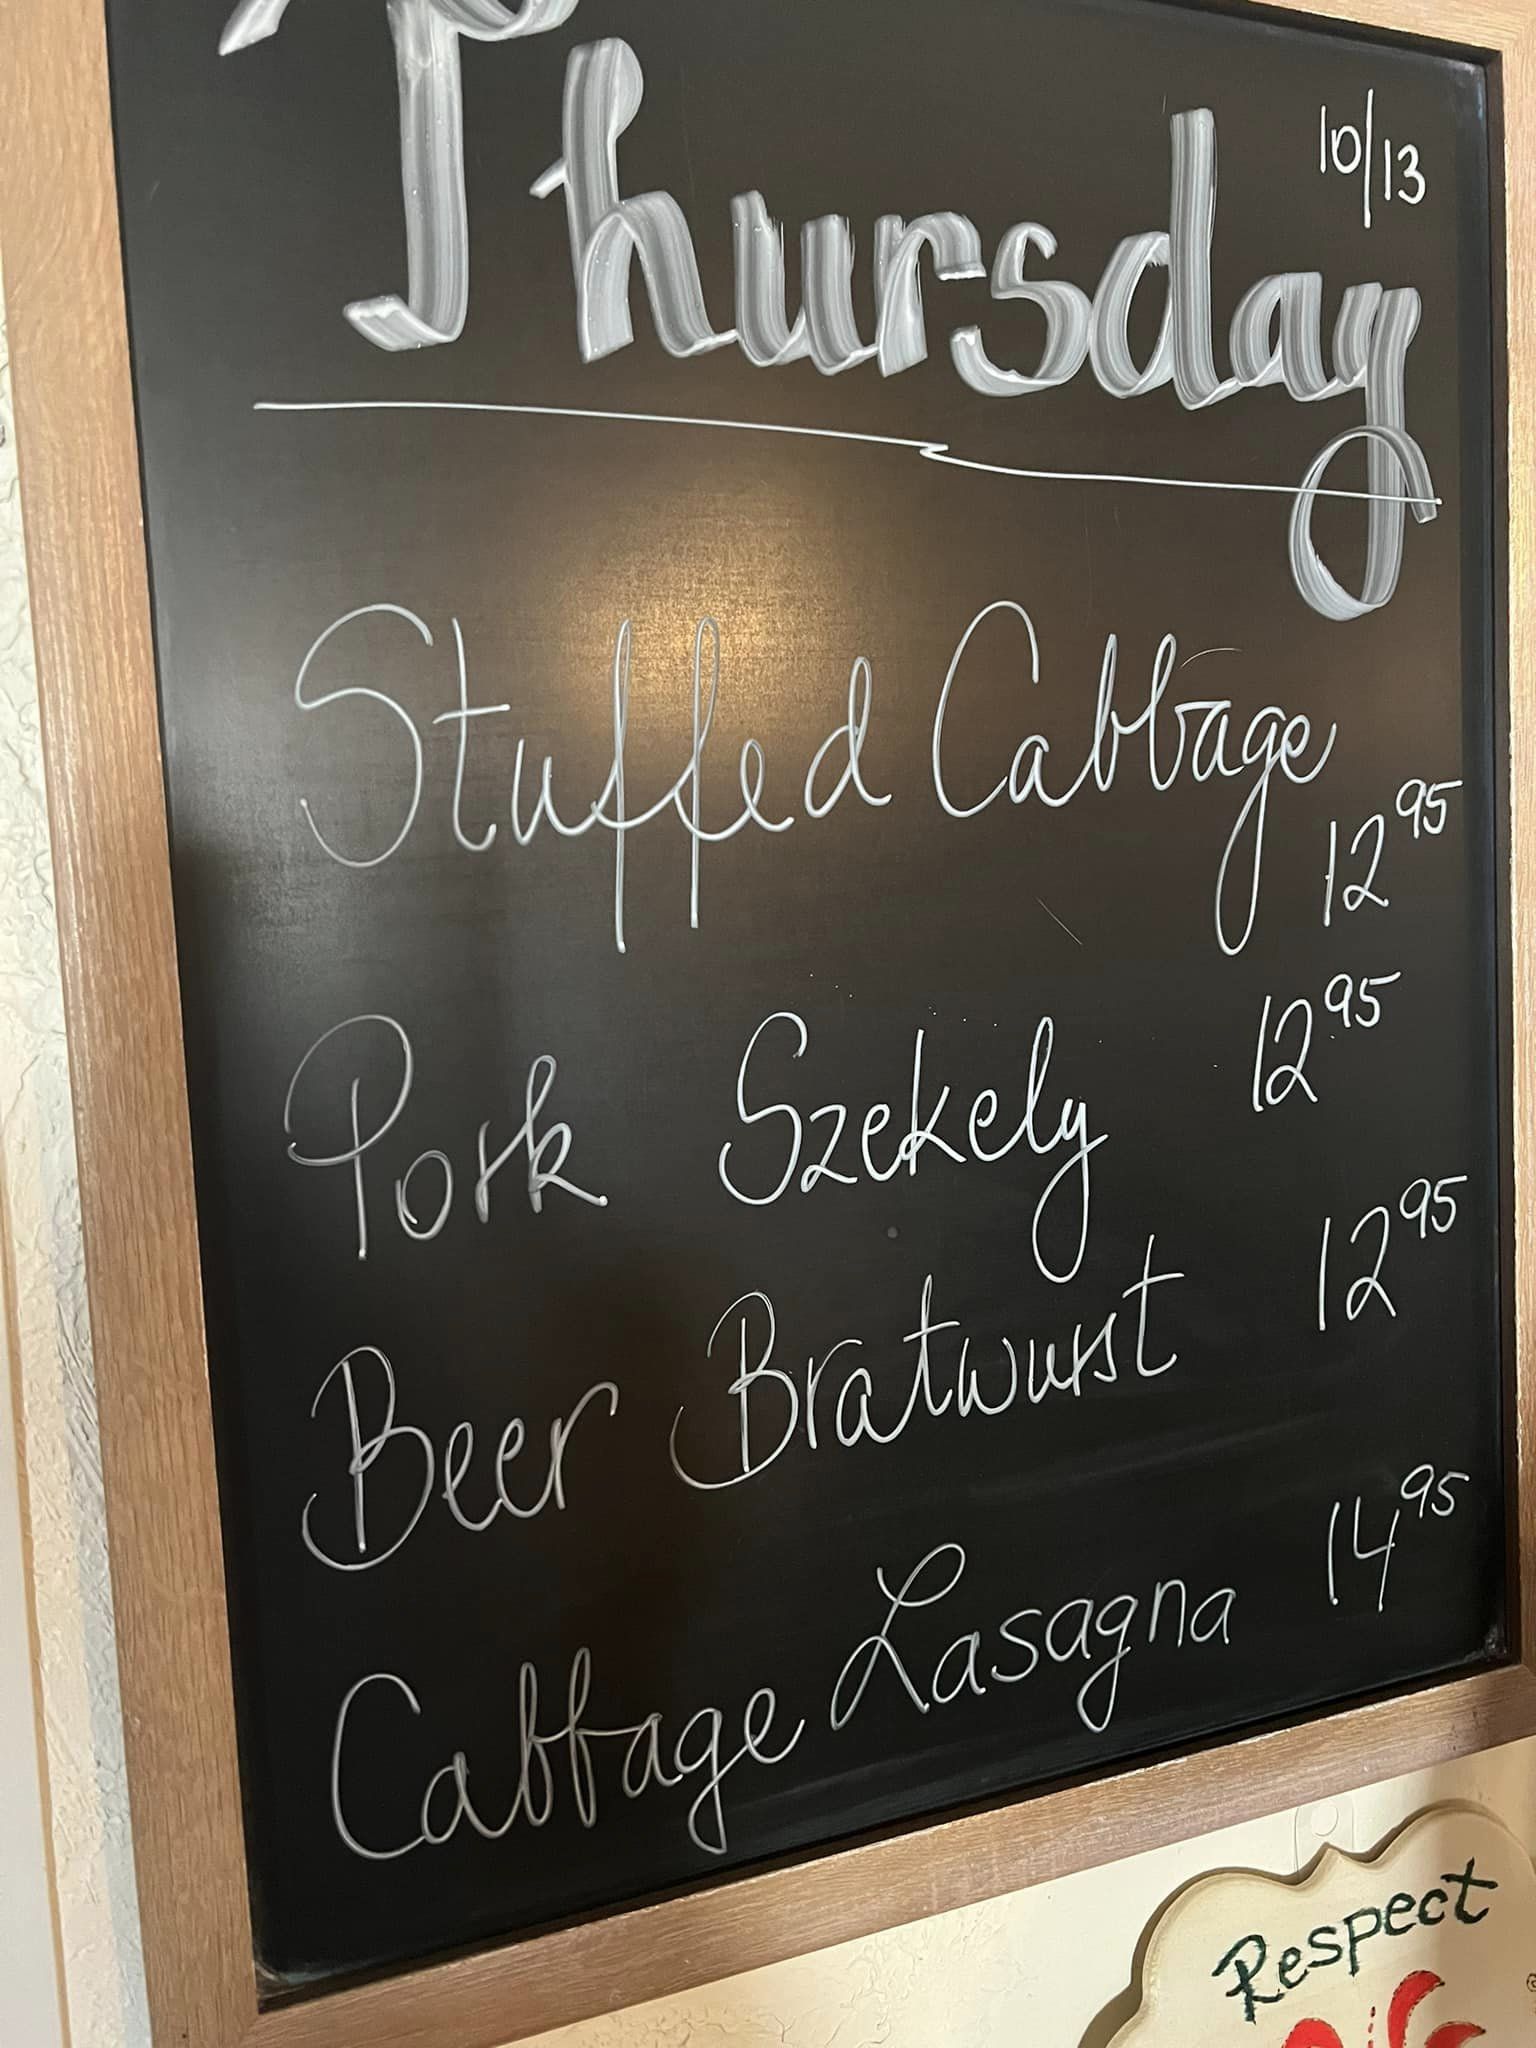 10/13
Thursday
Stuffed Cabbage
12 95
Pork Szekely 12 95
Beer Bratwurst 12 95
Cabbage Lasagna 14 95
Respect